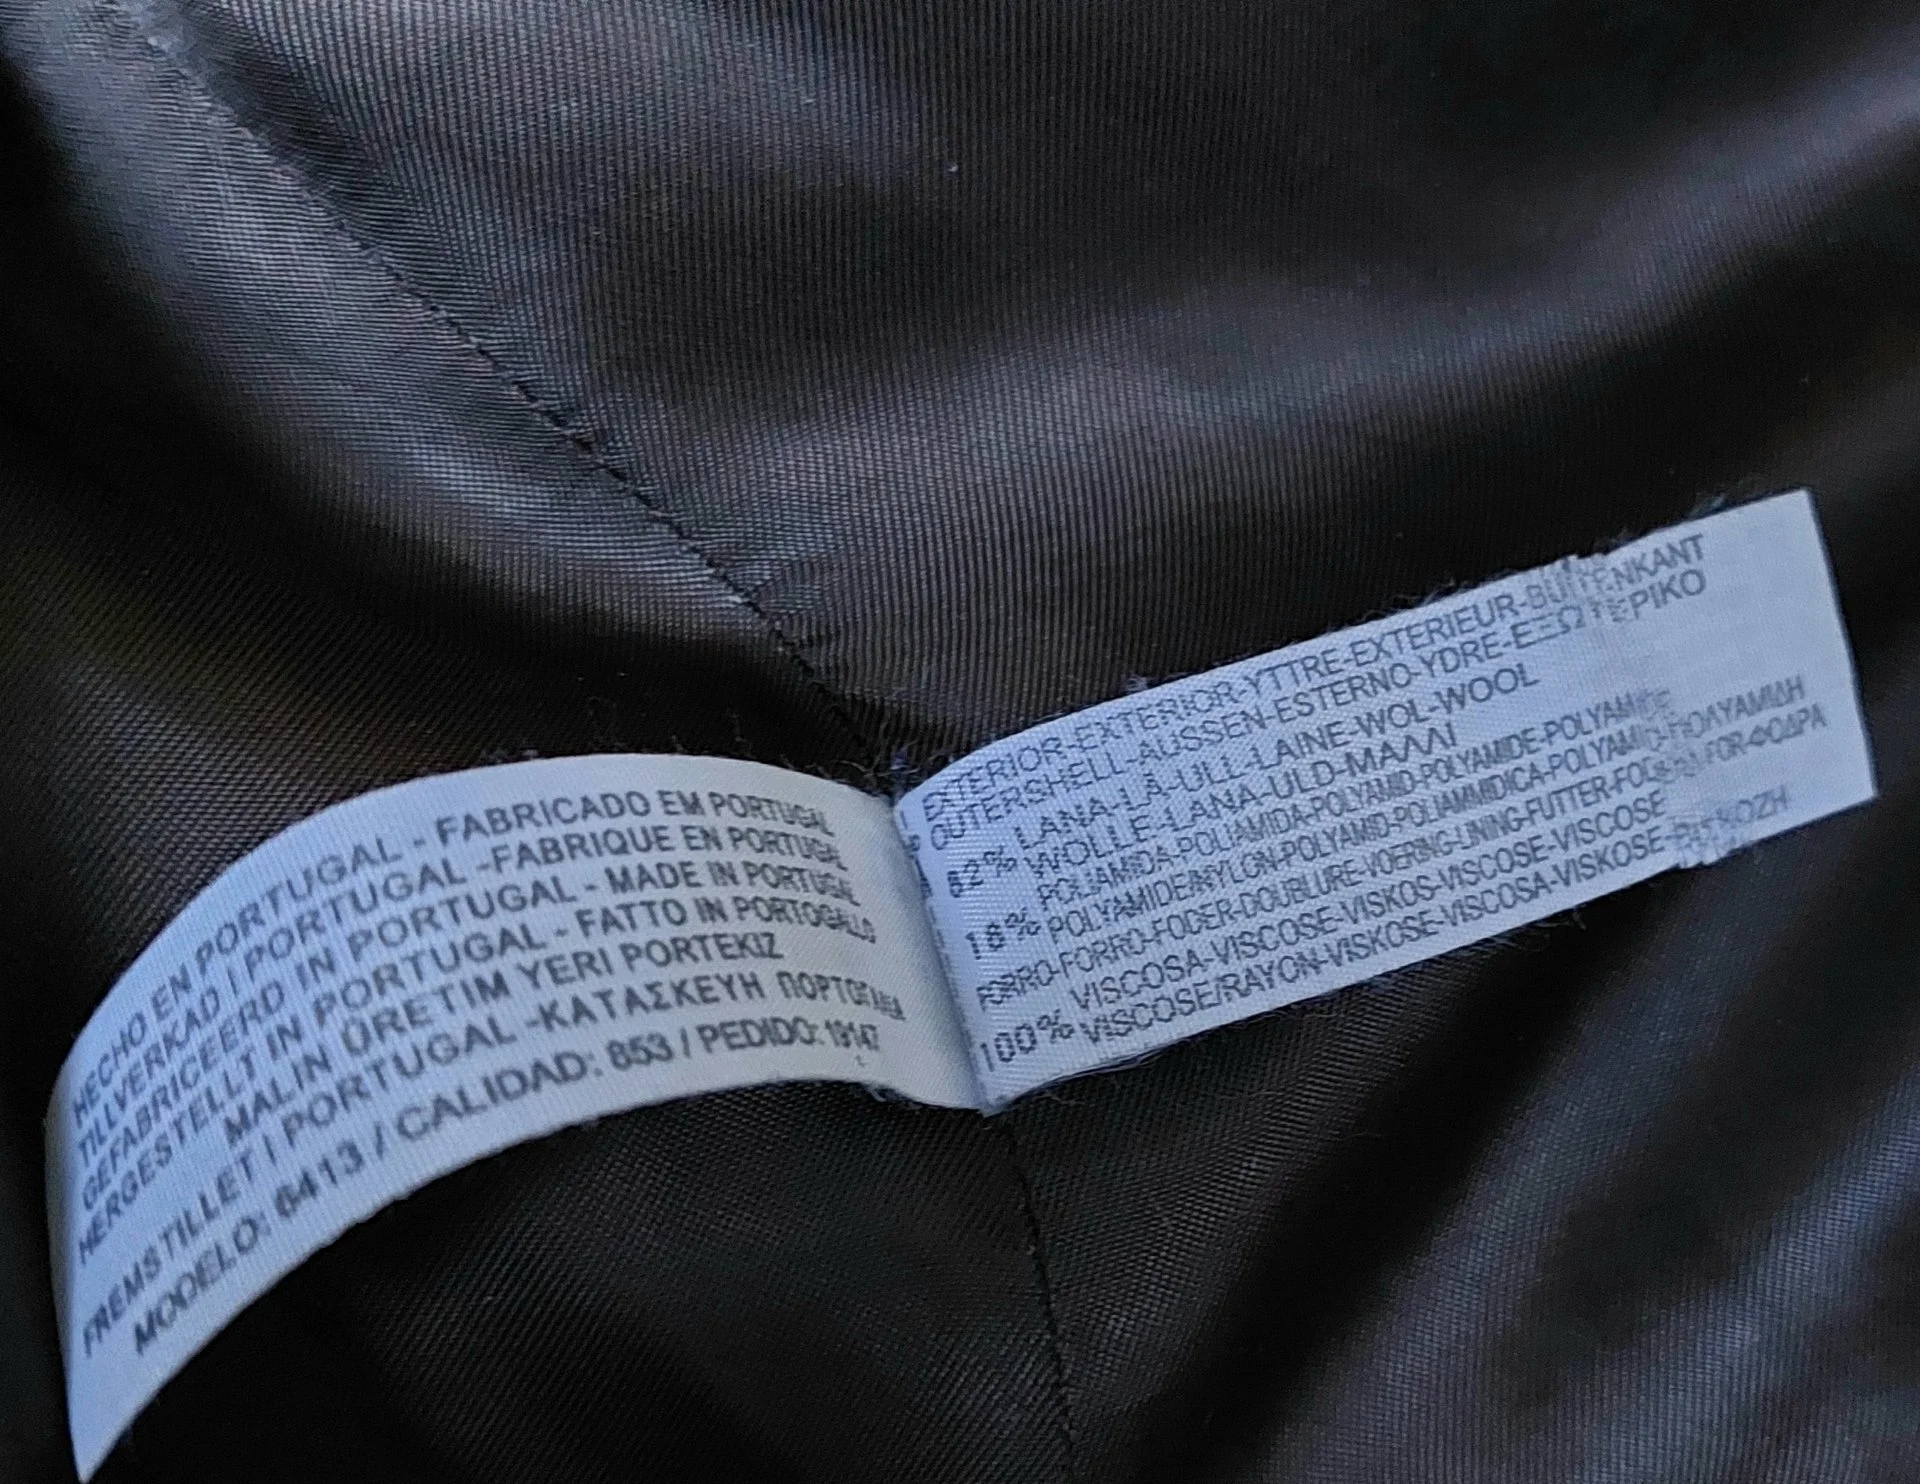 HECHO EN PORTUGAL - FABRICADO EM PORTUGAL
TILLVERKAD I PORTUGAL -FABRIQUE EN PORTUGAL
GEFABRICEERD IN PORTUGAL - MADE IN PORTUGAL
HERGESTELLT IN PORTUGAL - FATTO IN PORTOGALLO
MALIN ÜRETIM YERI PORTEKIZ
FREMSTILLET I PORTUGAL -ΚΑΤΑΣΚΕΥΗ ΠΟΡΤΟΓΑΛΙΑ
MODELO: 6413 / CALIDAD: 853 / PEDIDO: 19147
EXTERIOR-EXTERIOR-YTTRE-EXTERIEUR-BUITENKANT
OUTERSHELL-AUSSEN-ESTERNO-YDRE-ΕΞΩΤΕΡΙΚΟ
82% LANA-LÃ-ULL-LAINE-WOL-WOOL
WOLLE-LANA-ULD-ΜΑΛΛΙ
18% POLIAMIDA-POLIAMIDA-POLYAMID-POLYAMIDE-POLYAMIDE
POLYAMIDE/NYLON-POLYAMID-POLIAMMIDICA-POLYAMID-ΠΟΛΥΑΜΙΔΗ
FORRO-FORRO-FODER-DOUBLURE-VOERING-LINING-FUTTER-FODERA-FOR-ΦΟΔΡΑ
100% VISCOSA-VISCOSE-VISKOS-VISCOSE-VISCOSE
VISCOSE/RAYON-VISKOSE-VISCOSA-VISKOSE-ΒΙΣΚΟΖΗ